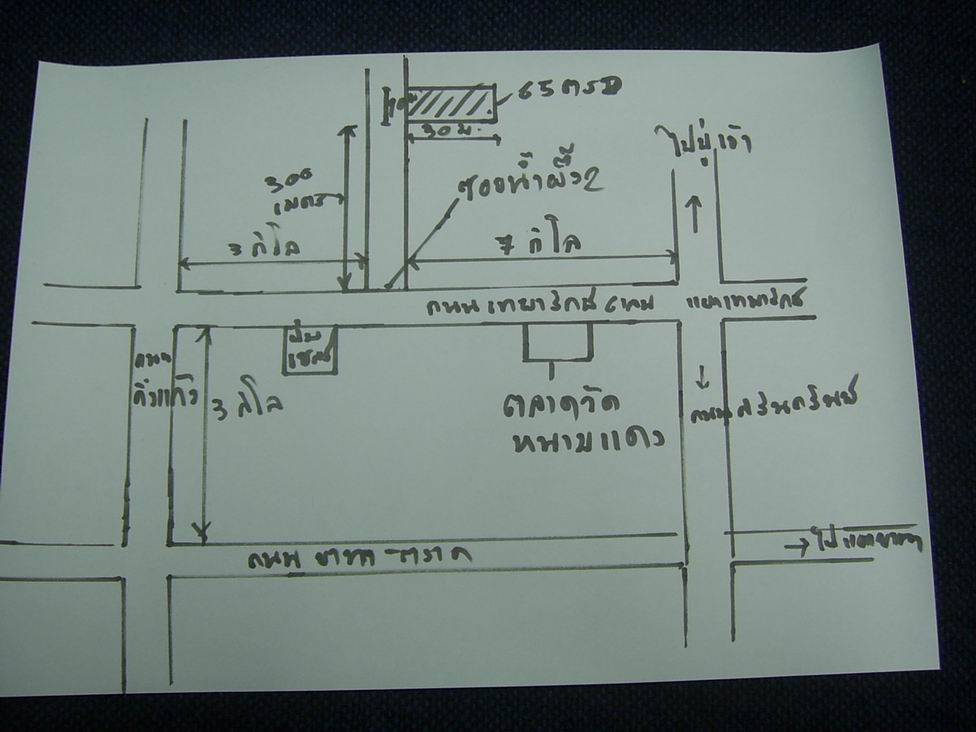 65 ตรว
30 ม.
ไปปู่เจ้า
300
เมตร
ซอยน้ำผึ้ง2
3 กิโล
7 กิโล
ถนนเทพารักษ์
แยกเทพารักษ์
ปั๊ม
เชลล์
ถนน
กิ่งแก้ว
3 กิโล
ตลาดวัด
หนามแดง
ถนนศรีนครินทร์
ถนน บางนา-ตราด
ไปแยกบางนา